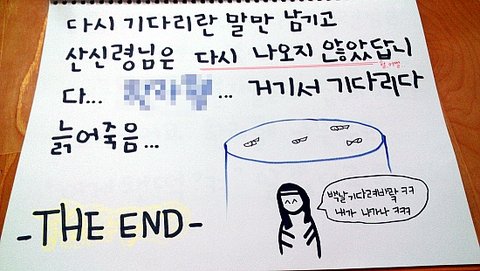 다시 기다리란 말만 남기고
산신령님은 다시 나오지 않았답니
다... ... 거기서 기다리다
늙어죽음...
백날기다려바랔 ㅋㅋ
내가 나가나 ㅋㅋㅋ
-THE END-